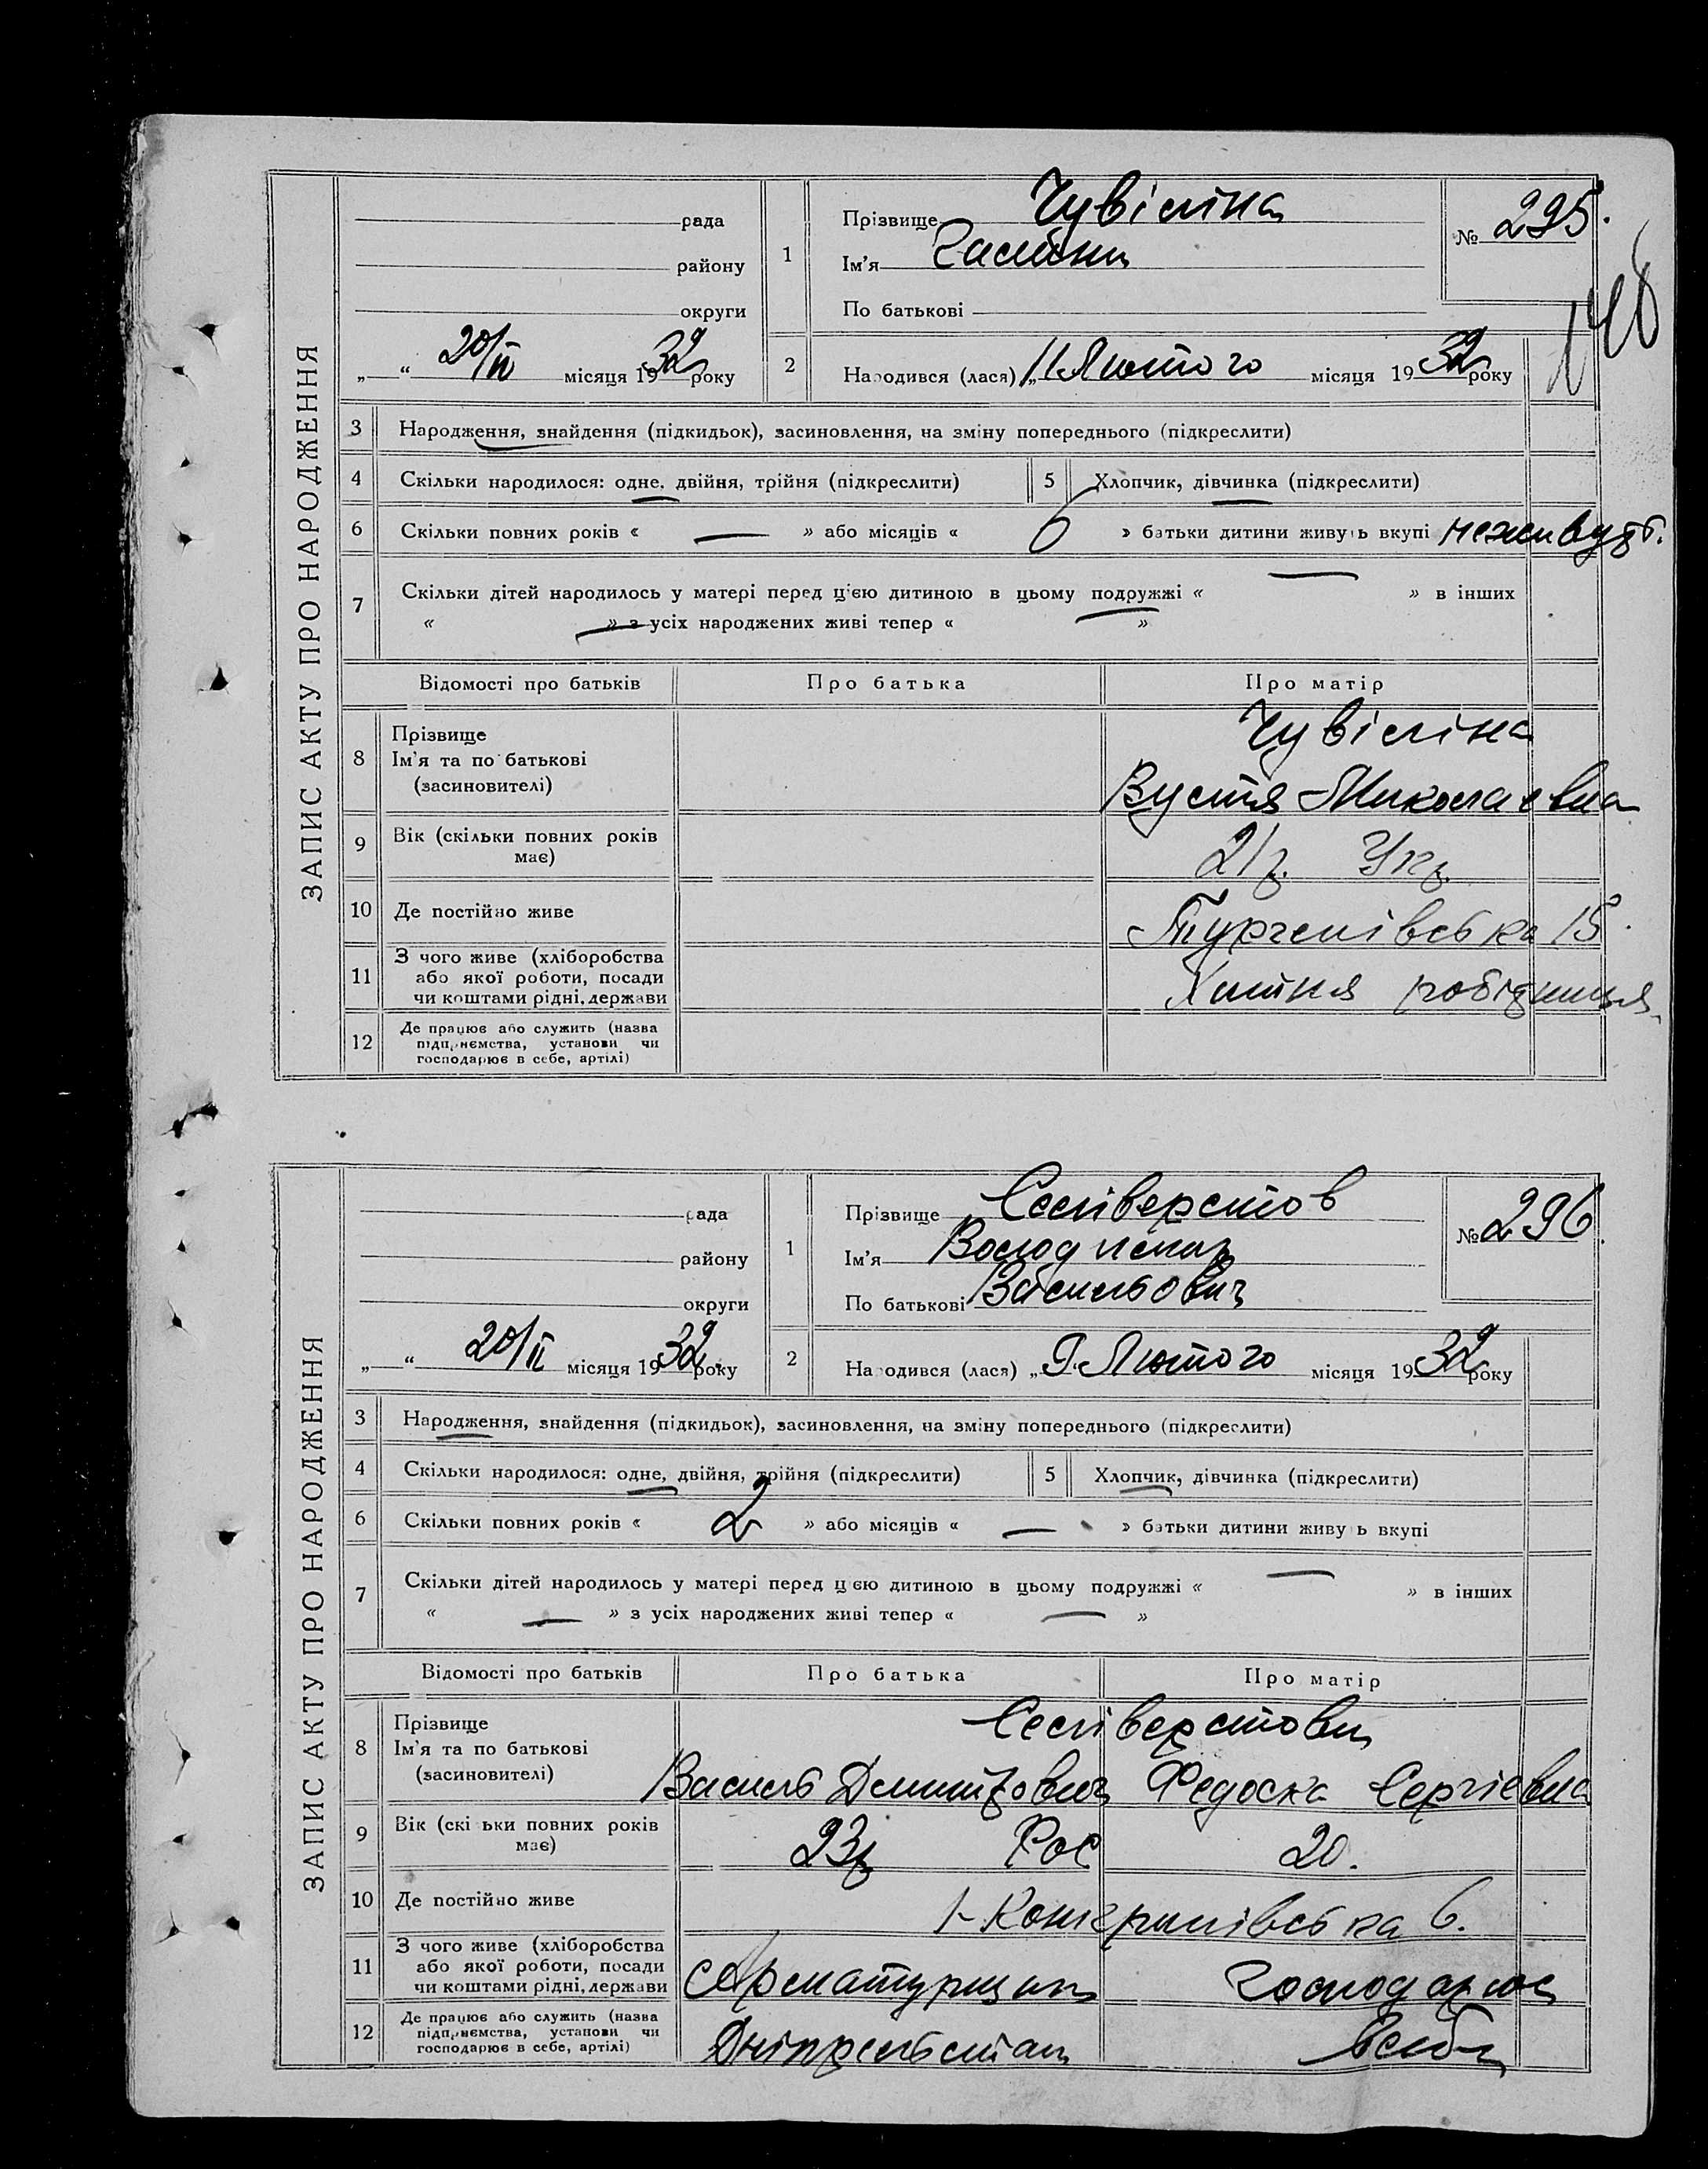 ЗАПИС АКТУ ПРО НАРОДЖЕННЯ
рада
району
округи
„ “ 20/II місяця 1932 року
1 Прізвище Чувіліна
Ім'я Галина
По батькові
№ 295.
148
2 Народився (лася) „11 Лютого місяця 1932 року
3 Народження, знайдення (підкидьок), засиновлення, на зміну попереднього (підкреслити)
4 Скільки народилося: одне, двійня, трійня (підкреслити) 5 Хлопчик, дівчинка (підкреслити)
6 Скільки повних років « — » або місяців « 6 » батьки дитини живуть вкупі неживуть.
7 Скільки дітей народилось у матері перед цією дитиною в цьому подружжі « — » в інших
« — » з усіх народжених живі тепер « — »
Відомості про батьків Про батька Про матір
8 Прізвище Ім'я та по батькові (засиновителі)
Чувіліна
Вустя Миколаевна
9 Вік (скільки повних років має)
21р. Укр.
10 Де постійно живе
Тургенівська 15.
11 З чого живе (хліборобства або якої роботи, посади чи коштами рідні, держави
Хатня робідниця
12 Де працює або служить (назва підприємства, установи чи господарює в себе, артілі)
ЗАПИС АКТУ ПРО НАРОДЖЕННЯ
рада
району
округи
„ “ 20/II місяця 1932 року
1 Прізвище Селіверстов
Ім'я Володимир
По батькові Васильович
№ 296.
2 Народився (лася) „9. Лютого місяця 1932 року
3 Народження, знайдення (підкидьок), засиновлення, на зміну попереднього (підкреслити)
4 Скільки народилося: одне, двійня, трійня (підкреслити) 5 Хлопчик, дівчинка (підкреслити)
6 Скільки повних років « 2 » або місяців « — » батьки дитини живуть вкупі
7 Скільки дітей народилось у матері перед цією дитиною в цьому подружжі « — » в інших
« — » з усіх народжених живі тепер « — »
Відомості про батьків Про батька Про матір
8 Прізвище Ім'я та по батькові (засиновителі)
Селіверстови
Василь Дмитрович Федоска Сергіевна
9 Вік (скільки повних років має)
23р Рос 20.
10 Де постійно живе
6.
11 З чого живе (хліборобства або якої роботи, посади чи коштами рідні, держави
Арматурщик Господарює
12 Де працює або служить (назва підприємства, установи чи господарює в себе, артілі)
Дніпрельстан